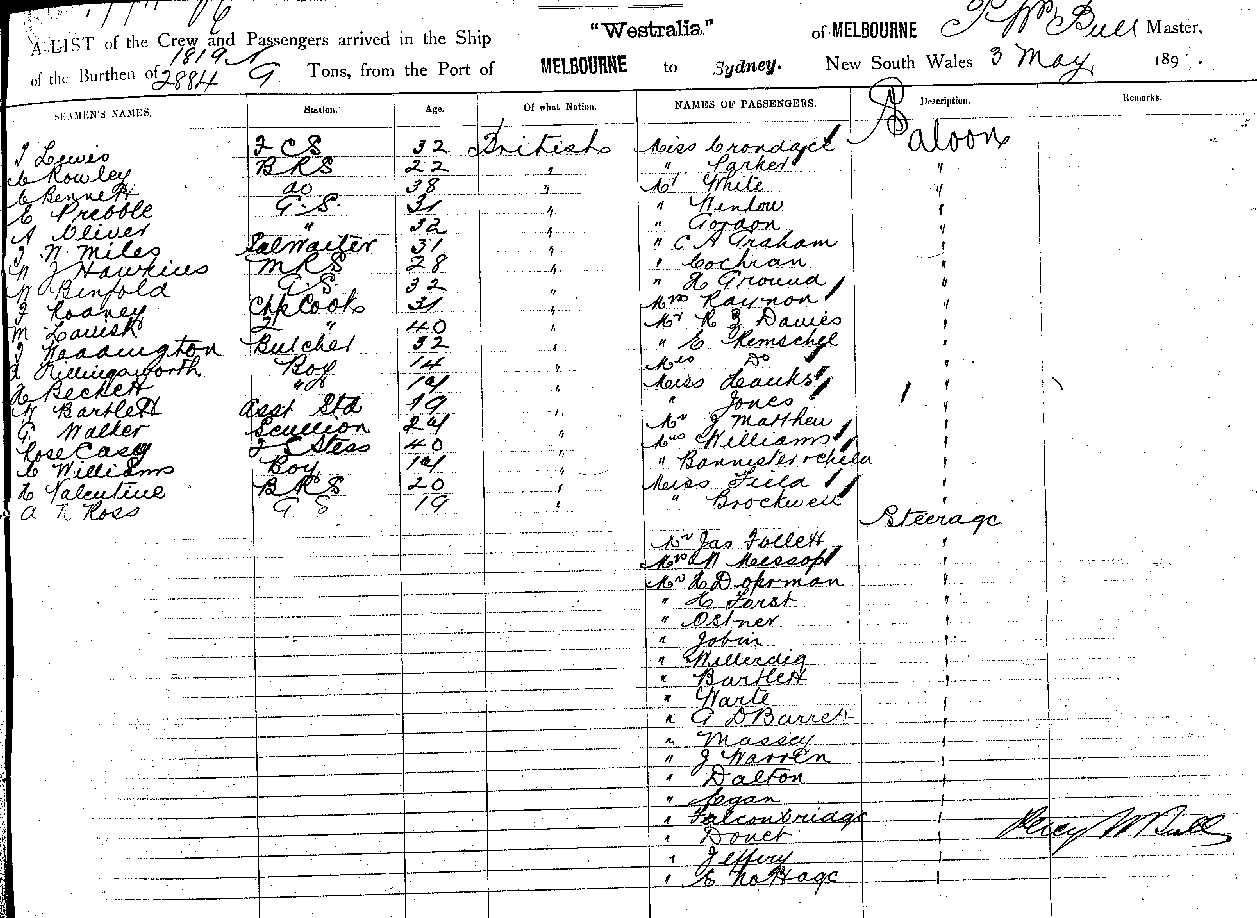 A LIST of the Crew and Passengers arrived in the Ship "Westralia." of MELBOURNE P W Bull Master,
1819 N
of the Burthen of 2884 G Tons, from the Port of MELBOURNE to Sydney. New South Wales 3 May, 189
SEAMEN'S NAMES. Station. Age. Of what Nation. NAMES OF PASSENGERS. Description. Remarks.
Lewis F C S 32 British Miss Crondace Saloon
C Rowley B R S 22 " " Parker "
C Bennett do 38 " Mr White "
E Prebble G. S. 31 " " Winlow "
A Oliver " 32 " " Gordon "
W Miles Sal Waiter 31 " " C A Graham "
W J Hawkins M R S 28 " " Cochran "
W Binfold G. S. 32 " " H Ground "
J Rooney Ch Cook 31 " Mrs Raynon "
M Lavish 2 " 40 " Mr R J Davies "
J Waddington Butcher 32 " " C Hemschel "
Hillingsworth Boy 14 " Mrs Do "
H Beckett " 14 " Miss Hanks "
W Bartlett Asst Std 19 " " Jones "
G Walker Scullion 24 " Mr J Matthew "
Rose Casq F C Stess 40 " Mrs Williams "
C Williams Boy 14 " " Bannister & child "
H Valentine B R S 20 " Miss Field "
A R Ross G S 19 " " Brockwell "
Steerage
Mr Jas Follett "
Mrs W Messop "
Mr H Dohrman "
" H Forst "
" Ostner "
" Jobin "
" Willerdig "
" Bartlett "
" Warte "
" G D Barrett "
" Massey "
" J Warren "
" Dalton "
" Egan "
" Falconbridge "
" Douet " Percy W Bull
" Jeffery "
" E Nottage "